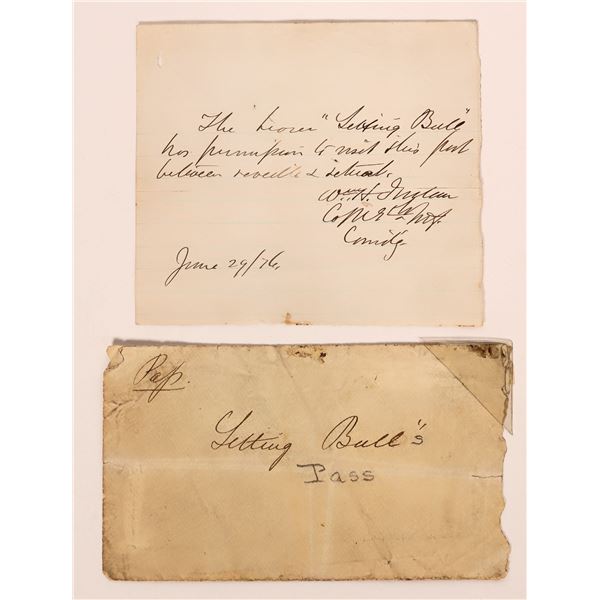 The bearer "Setting Bull"
has permission to visit this post
between reveille & retreat.
Wm. H. Jordan
Capt 9th Inft
Comdg
June 29/76.
Pass.
Setting Bull's
Pass